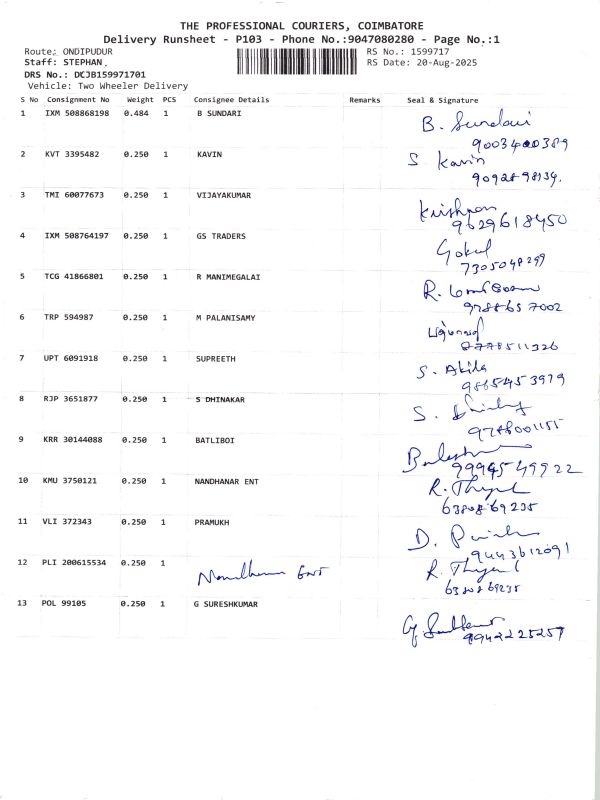 THE PROFESSIONAL COURIERS, COIMBATORE
Delivery Runsheet - P103 - Phone No.:9047080280 - Page No.:1
Route: ONDIPUDUR
RS No.: 1599717
Staff: STEPHAN.
RS Date: 20-Aug-2025
DRS No.: DCJB159971701
Vehicle: Two Wheeler Delivery
S No Consignment No Weight PCS Consignee Details Remarks Seal & Signature
1 IXM 508868198 0.484 1 B SUNDARI B. Sundari
9003400389
2 KVT 3395482 0.250 1 KAVIN S Kavin
9092898134.
3 TMI 60077673 0.250 1 VIJAYAKUMAR Krishnan
9629618450
4 IXM 508764197 0.250 1 GS TRADERS Gokul
7305048299
5 TCG 41866801 0.250 1 R MANIMEGALAI R.
978865 7002
6 TRP 594987 0.250 1 M PALANISAMY
8778511326
7 UPT 6091918 0.250 1 SUPREETH S. Akila
9865453979
8 RJP 3651877 0.250 1 S DHINAKAR S.
9788001155
9 KRR 30144088 0.250 1 BATLIBOI
9994549922
10 KMU 3750121 0.250 1 NANDHANAR ENT R.
6380869235
11 VLI 372343 0.250 1 PRAMUKH D.
9443612091
12 PLI 200615534 0.250 1 R.
6380869235
13 POL 99105 0.250 1 G SURESHKUMAR
9942225257